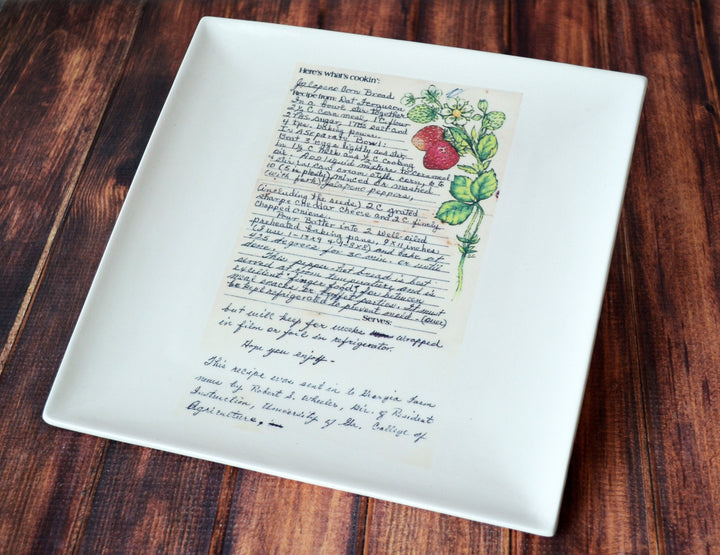 Here's what's cookin':
Jalapeno Corn Bread
Recipe from: Dot Ferguson
In a bowl stir together
2½ C. corn meal, 1 C. flour
2 Tbs sugar, 1 Tbs salt and
4 tsp. baking powder.
In A Separate Bowl:
Beat 3 eggs lightly and stir
in 1½ C. milk and ½ C. cooking
oil. Add liquid mixture to cornmeal
& stir in 1 can cream style corn, 6 to
10 (is plenty) minced or mashed
(with fork) jalapeno peppers,
(including the seeds) 2 C. grated
sharpe cheddar cheese and 2 C. finely
chopped onions.
Pour Batter into 2 well-oiled
preheated baking pans, 9 X 11 inches
(I use 1-13x9 & 1-8x8) and bake at
425 degrees for 30 min. or until
done.
This pepper-hot bread is best
served at room temperature and is
excellent "finger food" for between
meal snacks or buffet parties. It must
be kept refrigerated to prevent mold. (over)
Serves:
but will keep for weeks wrapped
in film or foil in refrigerator.
Hope you enjoy-
This recipe was sent in to Georgia Farm
news by Robert S. Wheeler, Dir. of Resident
Instruction, University of Ga. College of
Agriculture,